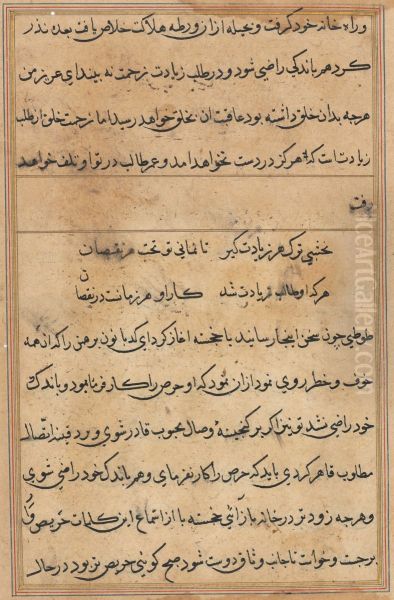 و راه خانه خود کرفت و بحیله از ان ورطه هلاکت خلاص یافت بعده نذر
کرد هر باندکی راضی شود و در طلب زیادت زحمت نه بیند ای عزیز من
هرچه بدان خلق داشته بود عاقبت ان بخلق خواهد رسید اما زحمت خلق از طلب
زیادت است که هرکز در دست نخواهد امد و عمر طالب در تو او تلف خواهد
رفت
نخشبی ترک هر زیادت کیر تا نمانی تو تحت هر نقصان
هرکه او طالب زیادت شد کار او هر زمانست در نقصان
طوطی چون سخن اینجا رسانید با خجسته اغاز کرد ای کدبانو بر همن را که ان همه
خوف و خطر روی نمود ازان بود که او حرص را کار فرما بود و باندک
خود راضی نشد تو نیز اکر بر کنجینه وصال محبوب قادر شوی و بر دفینه اتصال
مطلوب قاهر کردی باید که حرص را کار نفرمای و هم باندک خود راضی شوی
و هرچه زودتر در خانه باز آئی خجسته با از استماع این کلمات حریص
برجست و خواست تا جانب وثاق دوست شود صبح کوئی حریص تر بود در حال